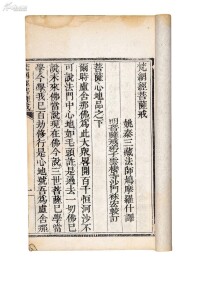 梵網經菩薩戒
姚秦三藏法師鳩摩羅什譯
明菩薩戒弟子雲棲寺沙門袾宏訂
菩薩心地品之下
爾時盧舍那佛為此大眾畧開百千恒河沙不
可說法門中心地如毛頭許是過去一切佛已
說未來佛當說現在佛今說三世菩薩已學當
學今學我已百劫修行是心地號吾為盧舍那